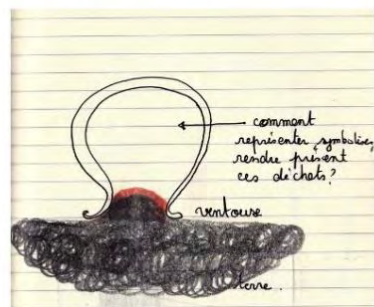 comment
représenter, symboliser,
rendre présent
ces déchets?
ventouse
terre.